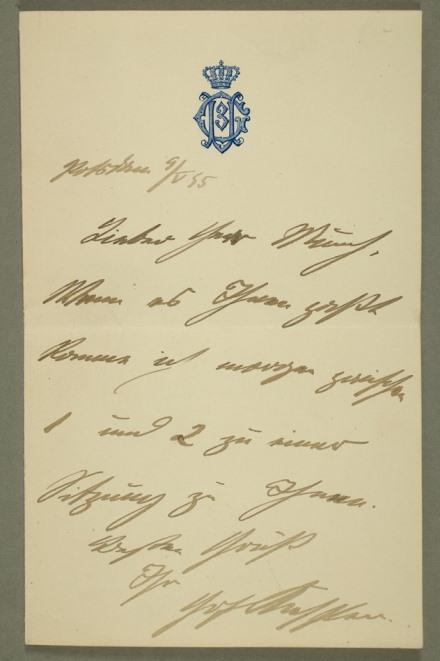 3
Potsdam 9/V 95
Lieber Herr Munch,
Wenn es Ihnen paßt
komme ich morgen zwischen
1 und 2 zu einer
Sitzung zu Ihnen.
Besten Gruß
Ihr
Kessler.